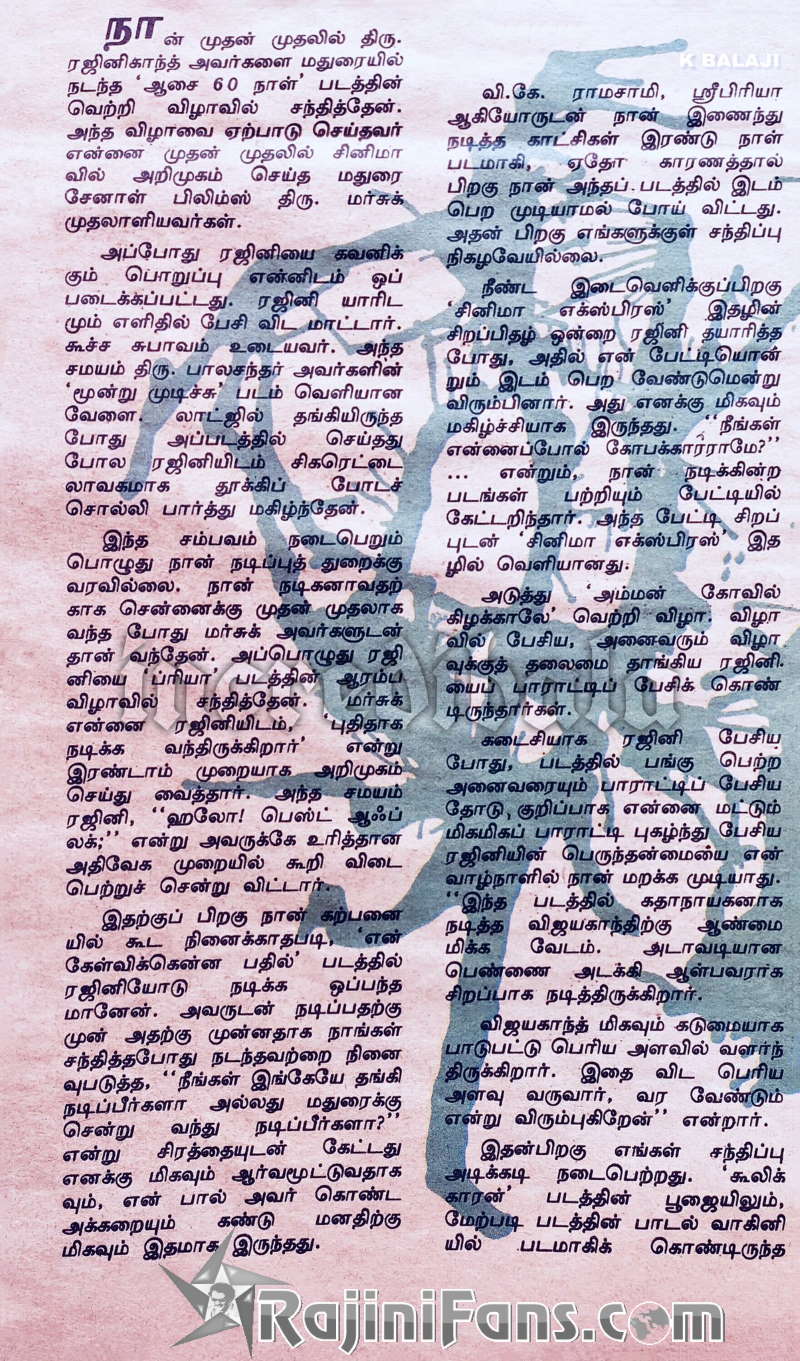 நான் முதன் முதலில் திரு.
ரஜினிகாந்த் அவர்களை மதுரையில்
நடந்த ‘ஆசை 60 நாள்’ படத்தின்
வெற்றி விழாவில் சந்தித்தேன்.
அந்த விழாவை ஏற்பாடு செய்தவர்
என்னை முதன் முதலில் சினிமா
வில் அறிமுகம் செய்த மதுரை
சேனாள் பிலிம்ஸ் திரு. மர்சுக்
முதலாளியவர்கள்.
அப்போது ரஜினியை கவனிக்
கும் பொறுப்பு என்னிடம் ஒப்
படைக்கப்பட்டது. ரஜினி யாரிட
மும் எளிதில் பேசி விட மாட்டார்.
கூச்ச சுபாவம் உடையவர். அந்த
சமயம் திரு. பாலசந்தர் அவர்களின்
‘மூன்று முடிச்சு’ படம் வெளியான
வேளை. லாட்ஜில் தங்கியிருந்த
போது அப்படத்தில் செய்தது
போல ரஜினியிடம் சிகரெட்டை
லாவகமாக தூக்கிப் போடச்
சொல்லி பார்த்து மகிழ்ந்தேன்.
இந்த சம்பவம் நடைபெறும்
பொழுது நான் நடிப்புத் துறைக்கு
வரவில்லை. நான் நடிகனாவதற்
காக சென்னைக்கு முதன் முதலாக
வந்த போது மர்சுக் அவர்களுடன்
தான் வந்தேன். அப்பொழுது ரஜி
னியை ‘ப்ரியா’ படத்தின் ஆரம்ப
விழாவில் சந்தித்தேன். மர்சுக்
என்னை ரஜினியிடம், ‘புதிதாக
நடிக்க வந்திருக்கிறார்’ என்று
இரண்டாம் முறையாக அறிமுகம்
செய்து வைத்தார். அந்த சமயம்
ரஜினி, ‘‘ஹலோ! பெஸ்ட் ஆஃப்
லக்;’’ என்று அவருக்கே உரித்தான
அதிவேக முறையில் கூறி விடை
பெற்றுச் சென்று விட்டார்.
இதற்குப் பிறகு நான் கற்பனை
யில் கூட நினைக்காதபடி, ‘என்
கேள்விக்கென்ன பதில்’ படத்தில்
ரஜினியோடு நடிக்க ஒப்பந்த
மானேன். அவருடன் நடிப்பதற்கு
முன் அதற்கு முன்னதாக நாங்கள்
சந்தித்தபோது நடந்தவற்றை நினை
வுபடுத்த, ‘‘நீங்கள் இங்கேயே தங்கி
நடிப்பீர்களா அல்லது மதுரைக்கு
சென்று வந்து நடிப்பீர்களா?’’
என்று சிரத்தையுடன் கேட்டது
எனக்கு மிகவும் ஆர்வமூட்டுவதாக
வும், என் பால் அவர் கொண்ட
அக்கறையும் கண்டு மனதிற்கு
மிகவும் இதமாக இருந்தது.
K BALAJI
வி.கே. ராமசாமி, ஸ்ரீபிரியா
ஆகியோருடன் நான் இணைந்து
நடித்த காட்சிகள் இரண்டு நாள்
படமாகி, ஏதோ காரணத்தால்
பிறகு நான் அந்தப் படத்தில் இடம்
பெற முடியாமல் போய் விட்டது.
அதன் பிறகு எங்களுக்குள் சந்திப்பு
நிகழவேயில்லை.
நீண்ட இடைவெளிக்குப்பிறகு
‘சினிமா எக்ஸ்பிரஸ்’ இதழின்
சிறப்பிதழ் ஒன்றை ரஜினி தயாரித்த
போது, அதில் என் பேட்டியொன்
றும் இடம் பெற வேண்டுமென்று
விரும்பினார். அது எனக்கு மிகவும்
மகிழ்ச்சியாக இருந்தது. ‘‘நீங்கள்
என்னைப்போல் கோபக்காரராமே?’’
... என்றும், நான் நடிக்கின்ற
படங்கள் பற்றியும் பேட்டியில்
கேட்டறிந்தார். அந்த பேட்டி சிறப்
புடன் ‘சினிமா எக்ஸ்பிரஸ்’ இத
ழில் வெளியானது.
அடுத்து ‘அம்மன் கோவில்
கிழக்காலே’ வெற்றி விழா. விழா
வில் பேசிய, அனைவரும் விழா
வுக்குத் தலைமை தாங்கிய ரஜினி.
யைப் பாராட்டிப் பேசிக் கொண்
டிருந்தார்கள்.
கடைசியாக ரஜினி பேசிய
போது, படத்தில் பங்கு பெற்ற
அனைவரையும் பாராட்டிப் பேசிய
தோடு,குறிப்பாக என்னை மட்டும்
மிகமிகப் பாராட்டி புகழ்ந்து பேசிய
ரஜினியின் பெருந்தன்மையை என்
வாழ்நாளில் நான் மறக்க முடியாது.
‘‘இந்த படத்தில் கதாநாயகனாக
நடித்த விஜயகாந்திற்கு ஆண்மை
மிக்க வேடம். அடாவடியான
பெண்ணை அடக்கி ஆள்பவராக
சிறப்பாக நடித்திருக்கிறார்.
விஜயகாந்த் மிகவும் கடுமையாக
பாடுபட்டு பெரிய அளவில் வளர்ந்
திருக்கிறார். இதை விட பெரிய
அளவு வருவார், வர வேண்டும்
என்று விரும்புகிறேன்’’ என்றார்.
இதன்பிறகு எங்கள் சந்திப்பு
அடிக்கடி நடைபெற்றது. ‘கூலிக்
காரன்’ படத்தின் பூஜையிலும்,
மேற்படி படத்தின் பாடல் வாகினி
யில் படமாகிக் கொண்டிருந்த
RajiniFans.com